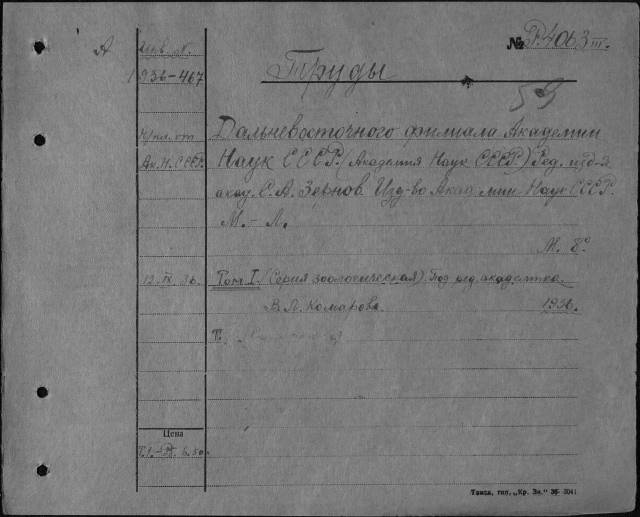 А
Инв. №.
1936-467
№ Р.4063 III.
Труды
59
Купл. от
Ак. Н. СССР.
Дальневосточного филиала Академии
Наук СССР. (Академия Наук СССР) Ред. изд-я
акад. С. А. Зернов Изд-во Академии Наук СССР.
М. – Л.
М. 8°
12. IX. 36.
Том I. (Серия зоологическая). Под ред. академика
В. Л. Комарова.
1936.
Т.
Цена
Типа, тип. „Кр. Зн." 36